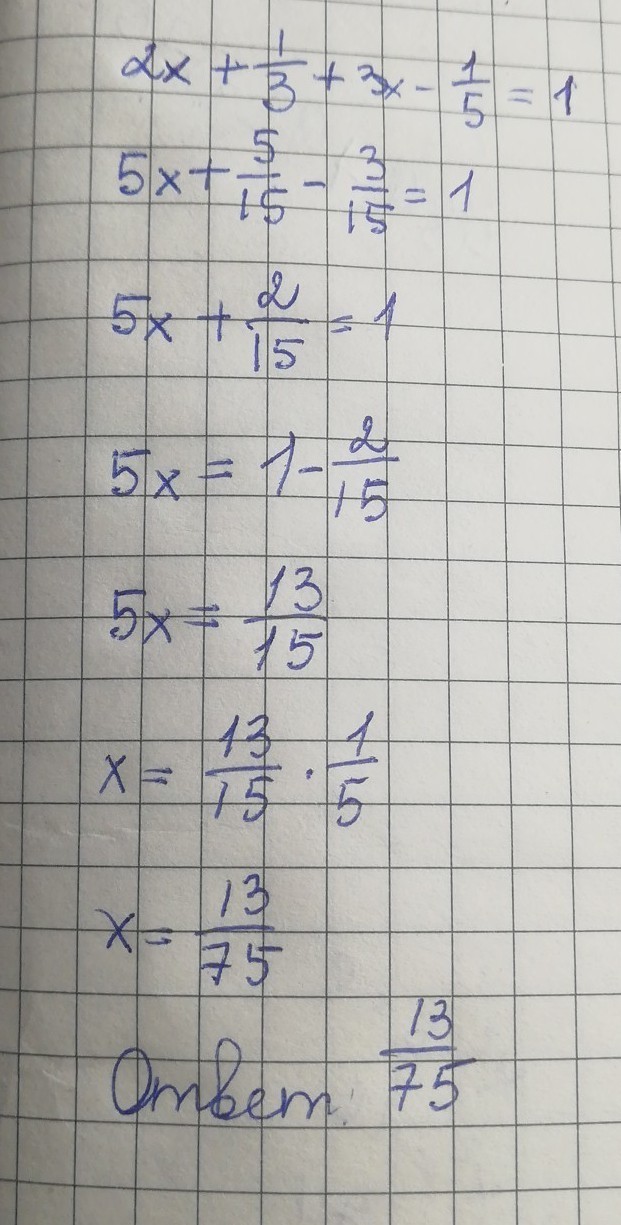 2x + 1/3 + 3x - 1/5 = 1
5x + 5/15 - 3/15 = 1
5x + 2/15 = 1
5x = 1 - 2/15
5x = 13/15
x = 13/15 · 1/5
x = 13/75
Ответ: 13/75